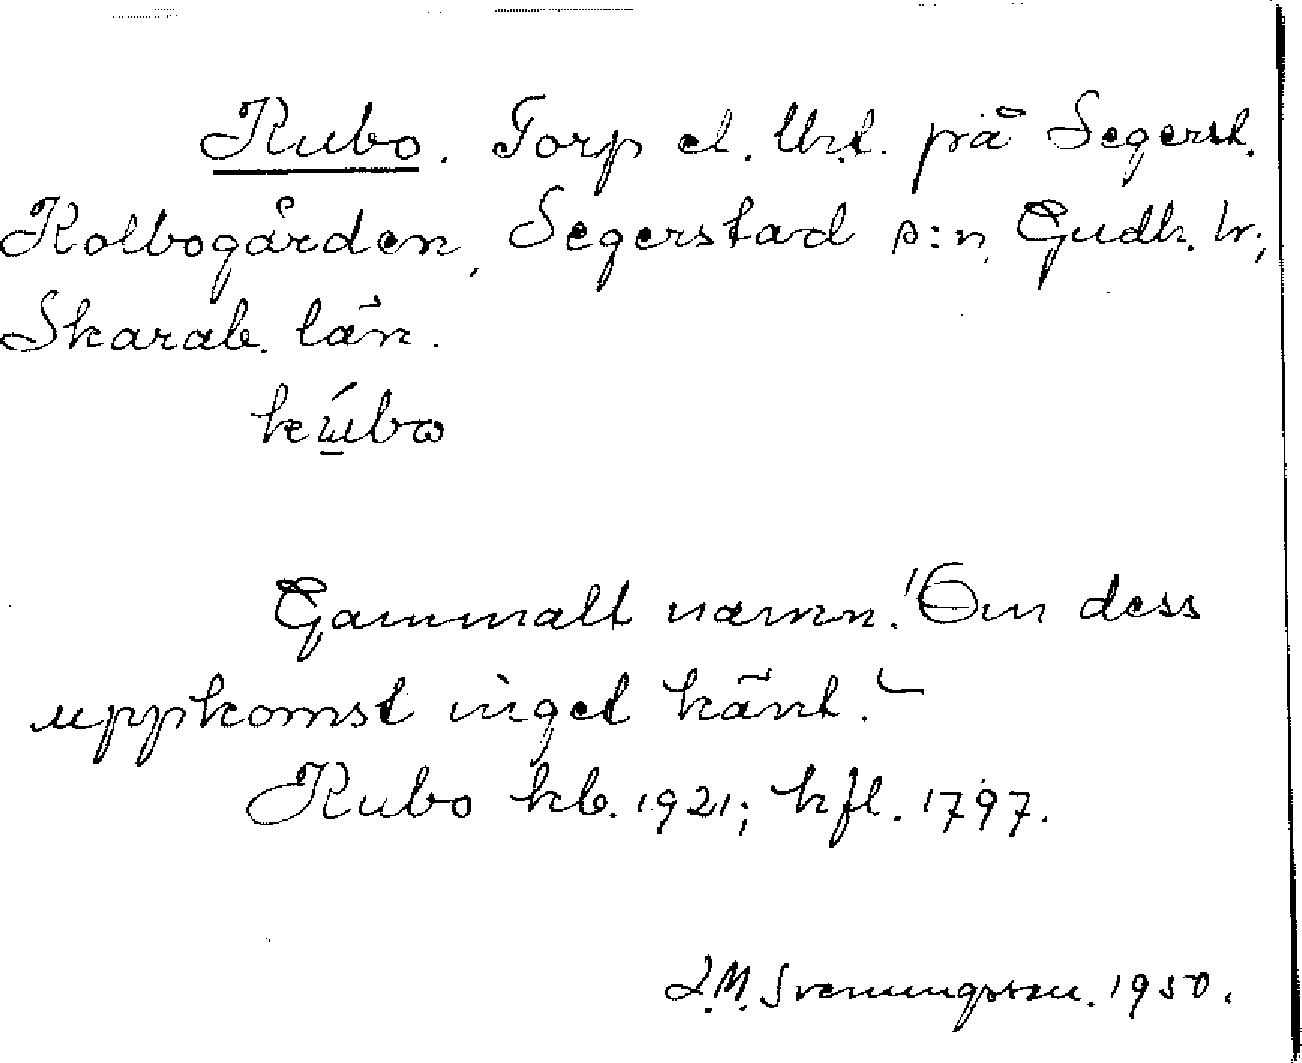 Kubo. Torp el. lht. på Segerst.
Kolbogården, Segerstad s:n, Gudh. hr;
Skarab. län.
Gammalt namn. "Om dess
uppkomst inget känt."
Kubo kb. 1921; hfl. 1797.
J.M. Svenungsson. 1950.